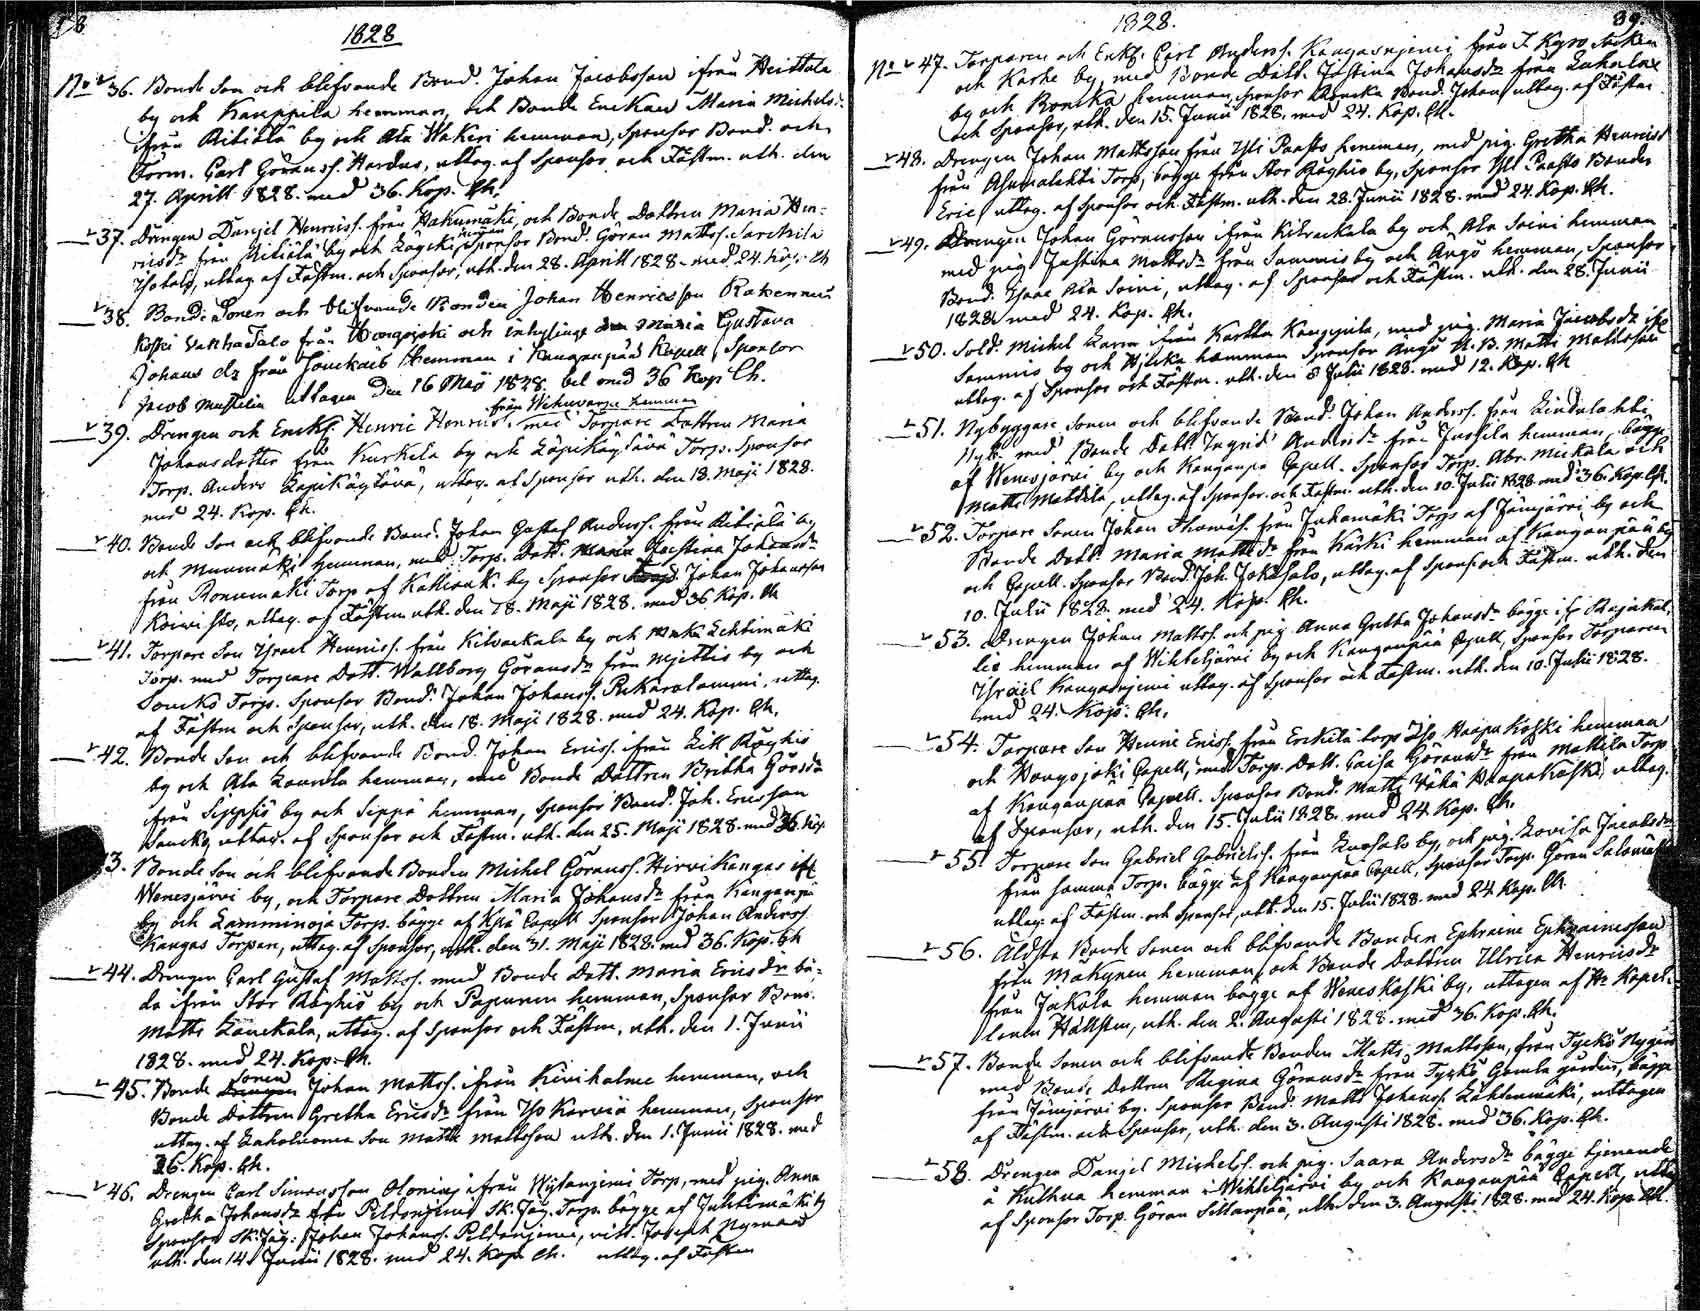 1828
No 36. Bonde Son och blifvande Bond. Johan Jacobsson ifrån Heittola
by och Kauppila hemman, och Bonde Enckan Maria Michelsd:
ifrån Ribiälä by och Ala Wakeri hemman, Sponsor Bond. och
Form. Carl Göranss. Hardus, uttag. af Sponsor och Fästm. utk. den
27. Aprill 1828. med 36. Kop. Ch.
37. Drengen Danjel Henricss. från Hakumäki, och Bonde Dottren Maria Hen-
ricsdr från Ribiälä by och Sponsor Bond. Göran Matss.
Isotalo, uttag. af Fästm. och Sponsor, utk. den 28. Aprill 1828. med 24. Kop. Ch
38. Bonde Sonen och blifvande Bonden Johan Henricsson Rakennus
Koski Vanhatalo från Hongojoki och inhysinge Maria Gustava
Johans dr från Jouckais Hemman i Kangan pää Kapell, Sponsor
Jacob uttagen den 16 Maij 1828. bet med 36 Kop Ch.
från hemman
39. Drengen och Enckl. Henric Henrics. med Torpare Dottren Maria
Johansdotter från Kurkela by och Torp. Sponsor
Torp. Anders uttag. af Sponsor utk. den 18. Maji 1828.
med 24. Kop. Ch.
40. Bonde Son och blifvande Bond. Johan Gustaf Anderss. från Ribiälä by
och Mummäki hemman, med Torp. Dott. Maria Justina Johansdr
från Ronumäki Torp af by Sponsor Johan Johansson
Koivisto, uttag. af Fästm. utk. den 18. Maji 1828. med 36 Kop. Ch
41. Torpare Son Israel Henricss. från Kilvackala by och Lehtimäki
Torp. med Torpare Dott. Wallborg Göransdr från Mjettis by och
Soucko Torp. Sponsor Bond. Johan Johanss. uttag.
af Fästm och Sponsor, utk. den 18. Maji 1828. med 24. Kop. Ch.
42. Bonde Son och blifvande Bond. Johan Ericss. ifrån Lill Röyhiö
by och Ala hemman, med Bonde Dottren Britha Görsdr
från Sippo by och Sippo hemman, Sponsor Bond. Joh. Ericsson
Soucko, uttag. af Sponsor och Fästm. utk. den 25. Maji 1828. med 36. Kop.
3. Bonde Son och blifvande Bonden Michel Göranss. Hirvikangas ifr
Wenesjärvi by, och Torpare Dottren Maria Johansdr från Kanganpä
by och Lamminoja Torp. bägge af Kpä Capell Sponsor Johan Anderss.
Kangas Torpan, uttag. af Sponsor, utk. den 31. Maji 1828. med 36. Kop. Ch
44. Drengen Carl Gustaf Matss. med Bonde Dott. Maria Ericsdr bä-
da ifrån Stor Röyhiö by och Papunen hemman, Sponsor Bond.
Matts uttag. af Sponsor och Fästm. utk. den 1. Junii
1828. med 24. Kop. Ch.
45. Bonde Sonen Johan Matss. ifrån Kiviholme hemman, och
Bonde Dottren Gretha Ericsdr från Iso Karvia hemman, Sponsor
uttag. af Son Matts Mattsson utk. den 1. Junii 1828. med
36. Kop. Ch.
46. Drengen Carl Simonsson ifrån Torp, med pig. Anna
Gretha Johansdr från Peldonjemi Sk. Jäg. Torp. bägge af Juhtimäki by
Sponsor Sk. Jäg. Johan Johanss. Peldonjemi, vitt. Joseph Nyman
utk. den 14. Junii 1828. med 24. Kop. Ch. uttag. af Fästm
1828.
39.
No 47. Torparen och Enkl. Carl Anderss. Kangasnjemi från I. Kyro Socken
och Karhe by, med Bonde Dott. Justina Johansdr från
by och Roncka hemman, Sponsor Roncka Bond. Johan uttag. af Fästm.
och Sponsor, utk. den 15. Junii 1828. med 24. Kop. Ch.
48. Drengen Johan Mattsson från Yli Paasto hemman, med pig. Gretha Henricsd
från Torp, bägge från Stor Röyhiö by, Sponsor Yli Paasto Bonden
Eric, uttag. af Sponsor och Fästm. utk. den 28. Junii 1828. med 24. Kop. Ch.
49. Drengen Johan Göransson ifrån Kilvackala by och Ala Soini hemman
med pig. Justina Mattsdr från Sammis by och Ängö hemman, Sponsor
Bond. Isaac Ala Soini, uttag. af Sponsor och Fästm. utk. den 28. Junii
1828. med 24. Kop. Ch.
50. Sold. Michel ifrån Karttu Kangspila, med pig. Maria Jacobsdr ifr
Sammis by och hemman Sponsor Ängö N. B. Matti Mattsson
uttag. af Sponsor och Fästm. utk. den 8 Julii 1828. med 12. Kop. Ch
51. Nybyggare Sonen och blifvande Bond. Johan Anderss. från Lindulahti
Nyb. med Bonde Dott. Ingrid Andersdr från Jussila hemman, bägge
af Wenesjärvi by och Kanganpä Capell. Sponsor Torp. Abr. Mickala och
Matts Mattila, uttag. af Sponsor och Fästm. utk. den 10. Julii 1828. med 36. Kop. Ch.
52. Torpare Sonen Johan Thomss. från Juhamäki Torp af Jämijärvi by och
Bonde Dott. Maria Mattsdr från Kärki hemman af Kanganpää by
och Capell. Sponsor Bond. Joh. Jokisalo, uttag. af Spons. och Fästm. utk. den
10. Julii 1828. med 24. Kop. Ch.
53. Drengen Johan Matss. och pig. Anna Gretha Johansdr bägge ifr
hemman af Wihteljärvi by och Kanganpää Capell, Sponsor Torparen
Israel Kangasnjemi uttag. af Sponsor och Fästm. utk. den 10. Julii 1828.
med 24. Kop. Ch.
54. Torpare Son Henric Ericss. från Erckilä torp Iso Haapa Koski hemman
och Hongojoki Capell, med Torp. Dott. Caisa Göransdr från Mattila Torp
af Kanganpää Capell. Sponsor Bond. Matts Vähä Haapakoski, uttag.
af Sponsor, utk. den 15. Julii 1828. med 24. Kop. Ch.
55. Torpare Son Gabriel Gabrielss. från by, och pig. Lovisa Jacobsdr
från samma Torp. bägge af Kanganpää Capell, Sponsor Torp. Göran
uttag. af Fästm. och Sponsor, utk. den 15. Julii 1828. med 24. Kop. Ch.
56. Äldsta Bonde Sonen och blifvande Bonden Ephraim Ephraimsson
från Makynen hemman och Bonde Dottren Ulrica Henricsdr
från Jakola hemman bägge af Weneskoski by, uttagen af Hr Kapel-
lanen Hallsten, utk. den 2. Augusti 1828. med 36. Kop. Ch.
57. Bonde Sonen och blifvande Bonden Matts Mattsson, från Tyckö Nygård
med Bonde Dottren Regina Göransdr från Tyckö Gamla gården, bägge
från Jämijärvi by. Sponsor Bond. Matts Johanss. Lähtenmäki, uttagen
af Fästm. och Sponsor, utk. den 3. Augusti 1828. med 36. Kop. Ch.
58. Drengen Danjel Michelss. och pig. Saara Andersdr bägge tjenande
å Kuthua hemman i Wihteljärvi by och Kanganpää Capell, uttag.
af Sponsor Torp. Göran Sillanpää, utk. den 3. Augusti 1828. med 24. Kop. Ch.